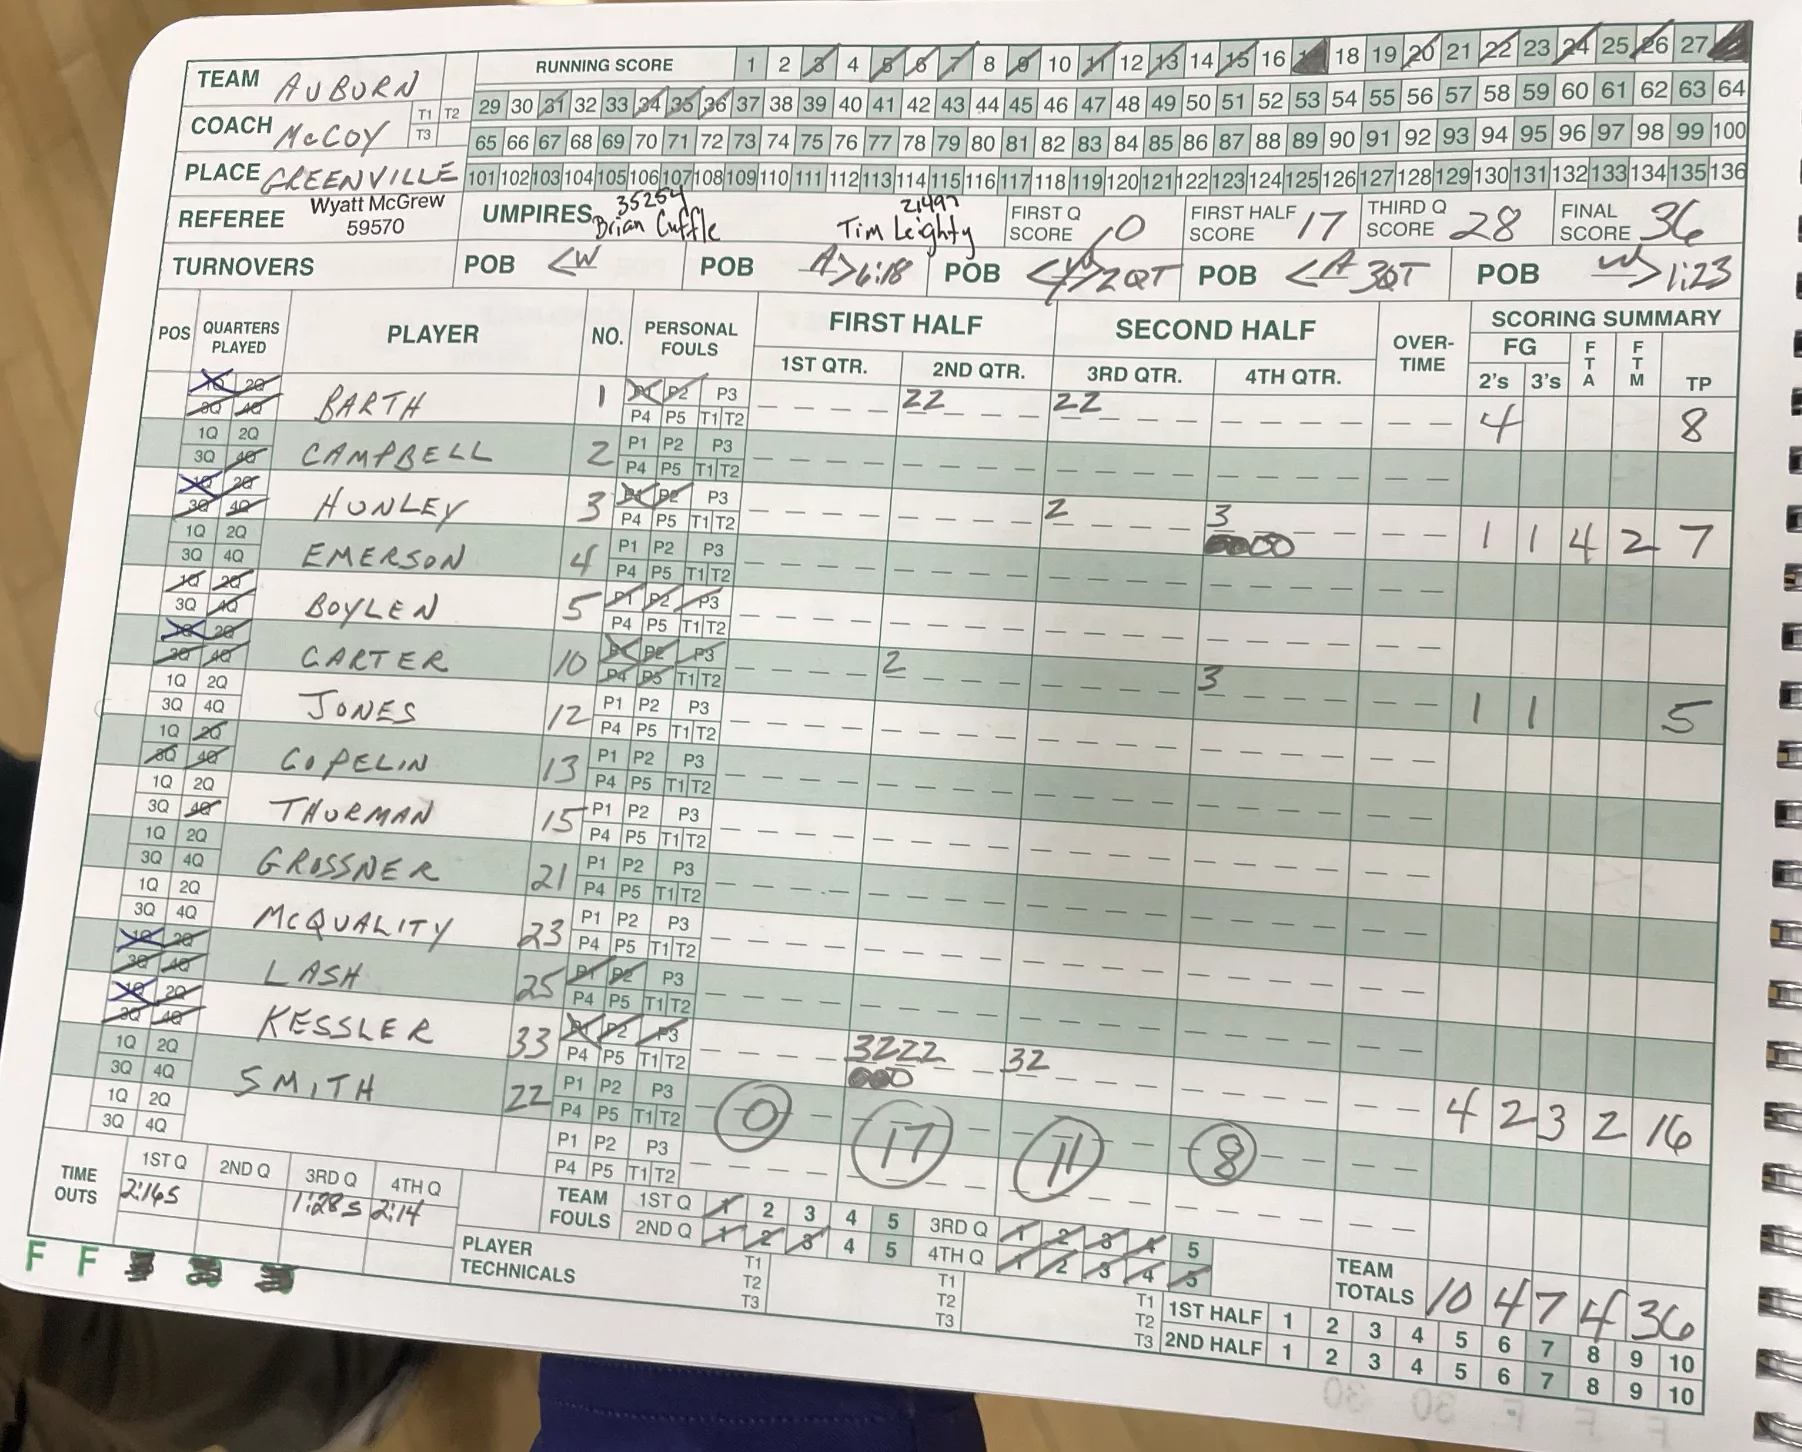 TEAM AUBURN RUNNING SCORE 1 2 3 4 5 6 7 8 9 10 11 12 13 14 15 16 18 19 20 21 22 23 24 25 26 27
T1 T2 29 30 31 32 33 34 35 36 37 38 39 40 41 42 43 44 45 46 47 48 49 50 51 52 53 54 55 56 57 58 59 60 61 62 63 64
COACH McCOY T3 65 66 67 68 69 70 71 72 73 74 75 76 77 78 79 80 81 82 83 84 85 86 87 88 89 90 91 92 93 94 95 96 97 98 99 100
PLACE GREENVILLE 101 102 103 104 105 106 107 108 109 110 111 112 113 114 115 116 117 118 119 120 121 122 123 124 125 126 127 128 129 130 131 132 133 134 135 136
REFEREE Wyatt McGrew 59570 UMPIRES 35254 Brian Cuffle 21497 Tim Leighty FIRST Q SCORE 0 FIRST HALF SCORE 17 THIRD Q SCORE 28 FINAL SCORE 36
TURNOVERS POB <W POB A> 6:18 POB <W> 2QT POB <A 3QT POB W> 1:23
POS QUARTERS PLAYED PLAYER NO. PERSONAL FOULS FIRST HALF SECOND HALF OVER-TIME SCORING SUMMARY
1ST QTR. 2ND QTR. 3RD QTR. 4TH QTR. FG 2's 3's FTA FTM TP
1Q 2Q BARTH 1 P1 P2 P3 22 22 4 8
3Q 4Q P4 P5 T1 T2
1Q 2Q CAMPBELL 2 P1 P2 P3
3Q 4Q P4 P5 T1 T2
1Q 2Q HUNLEY 3 P1 P2 P3 2 3 1 1 4 2 7
3Q 4Q P4 P5 T1 T2
1Q 2Q EMERSON 4 P1 P2 P3
3Q 4Q P4 P5 T1 T2
1Q 2Q BOYLEN 5 P1 P2 P3
3Q 4Q P4 P5 T1 T2
1Q 2Q CARTER 10 P1 P2 P3 2 3 1 1 5
3Q 4Q P4 P5 T1 T2
1Q 2Q JONES 12 P1 P2 P3
3Q 4Q P4 P5 T1 T2
1Q 2Q COPELIN 13 P1 P2 P3
3Q 4Q P4 P5 T1 T2
1Q 2Q THURMAN 15 P1 P2 P3
3Q 4Q P4 P5 T1 T2
1Q 2Q GROSSNER 21 P1 P2 P3
3Q 4Q P4 P5 T1 T2
1Q 2Q McQUALITY 23 P1 P2 P3
3Q 4Q P4 P5 T1 T2
1Q 2Q LASH 25 P1 P2 P3
3Q 4Q P4 P5 T1 T2
1Q 2Q KESSLER 33 P1 P2 P3 3222 32 4 2 3 2 16
3Q 4Q P4 P5 T1 T2
1Q 2Q SMITH 22 P1 P2 P3 0 17 11 8
3Q 4Q P4 P5 T1 T2
1Q 2Q P1 P2 P3
3Q 4Q P4 P5 T1 T2
TIME OUTS 1ST Q 2ND Q 3RD Q 4TH Q
2:14S 1:28S 2:14
TEAM FOULS 1ST Q 1 2 3 4 5 3RD Q 1 2 3 4 5
2ND Q 1 2 3 4 5 4TH Q 1 2 3 4 5
PLAYER TECHNICALS T1 T2 T3 T1 T2 T3 T1 T2 T3
TEAM TOTALS 10 4 7 4 36
1ST HALF 1 2 3 4 5 6 7 8 9 10
2ND HALF 1 2 3 4 5 6 7 8 9 10
F F